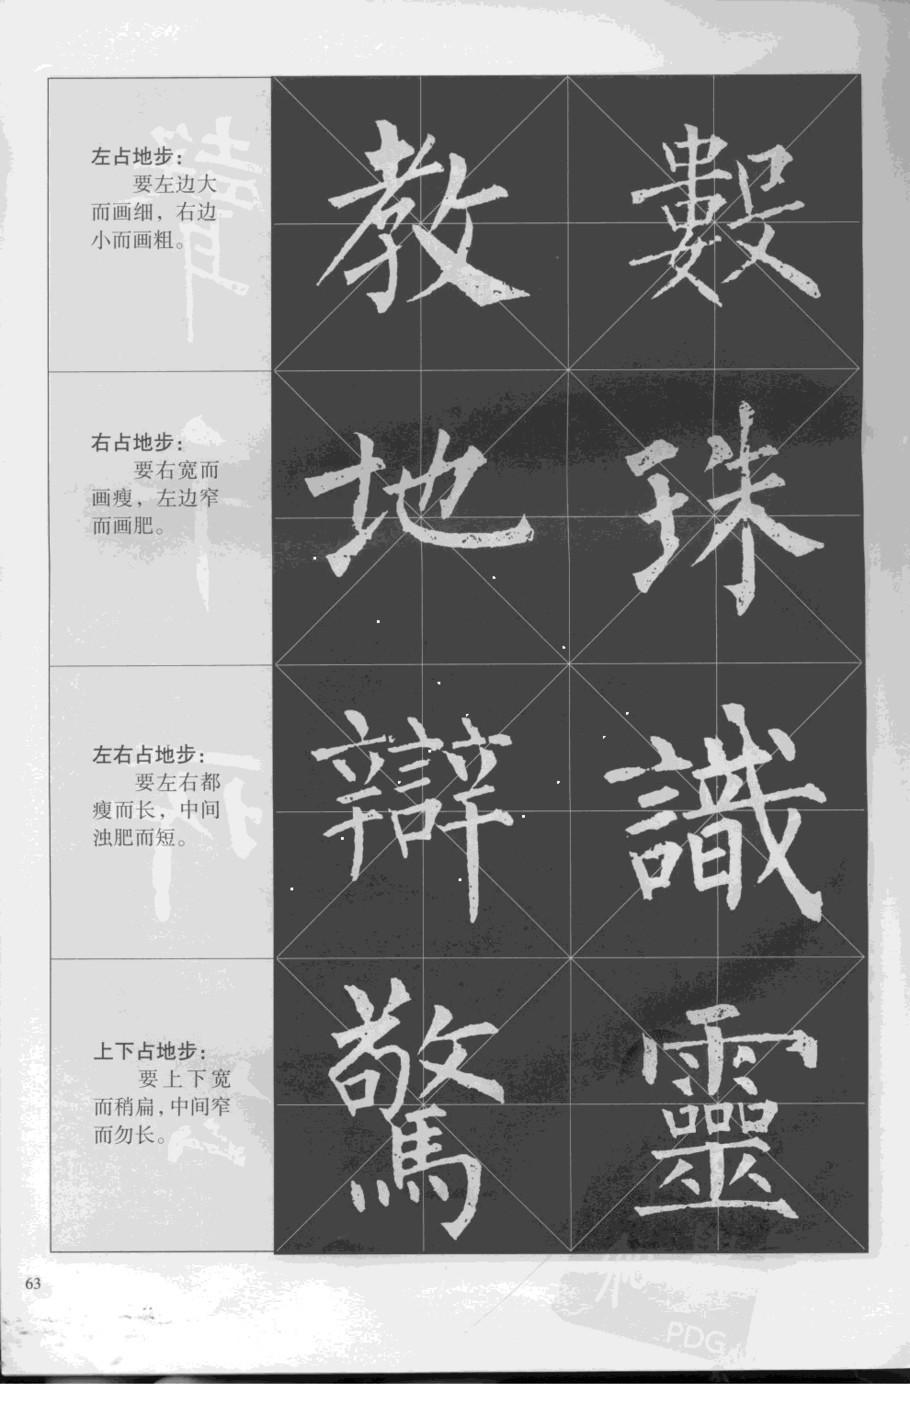 左占地步：
要左边大
而画细，右边
小而画粗。
教 數
右占地步：
要右宽而
画瘦，左边窄
而画肥。
地 珠
左右占地步：
要左右都
瘦而长，中间
浊肥而短。
辯 識
上下占地步：
要上下宽
而稍扁，中间窄
而勿长。
驚 靈
63
PDG